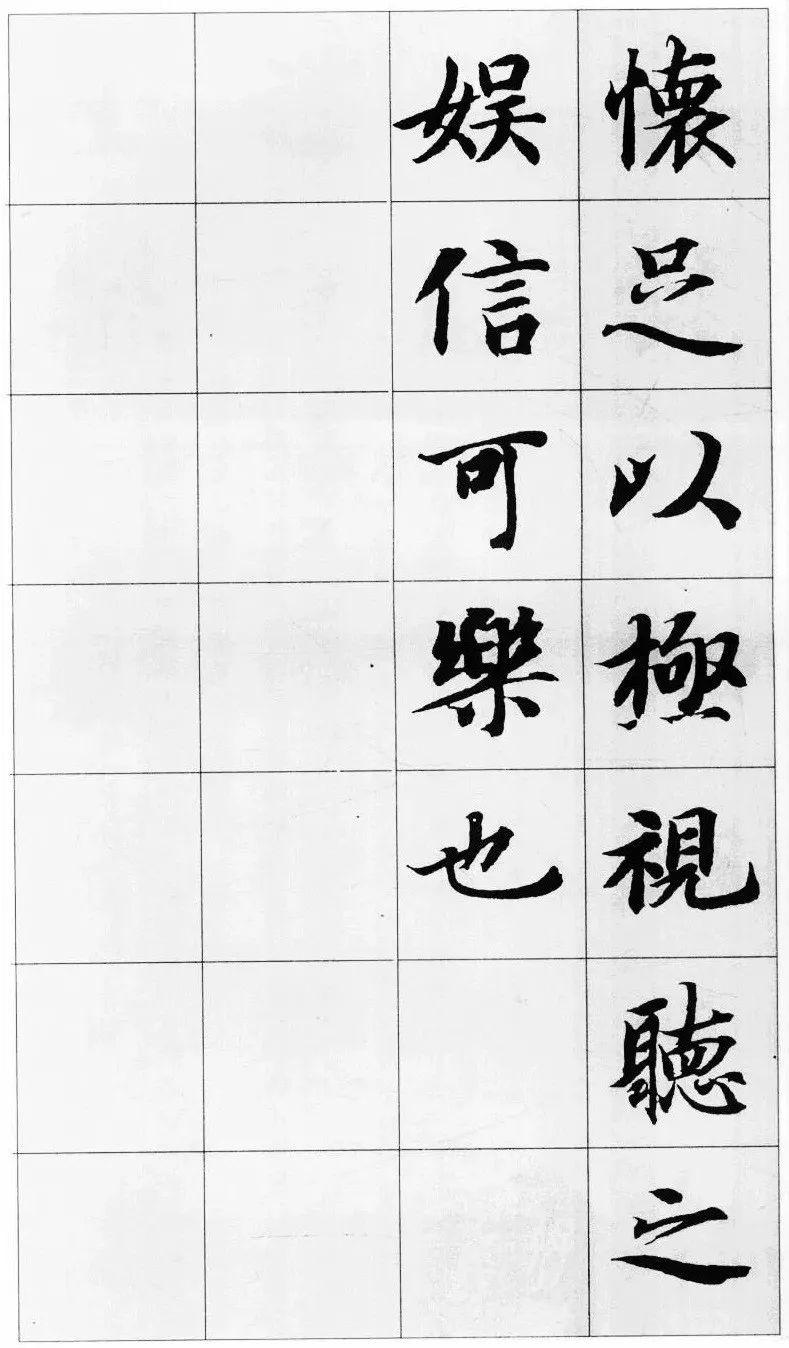 懷足以極視聽之
娛信可樂也